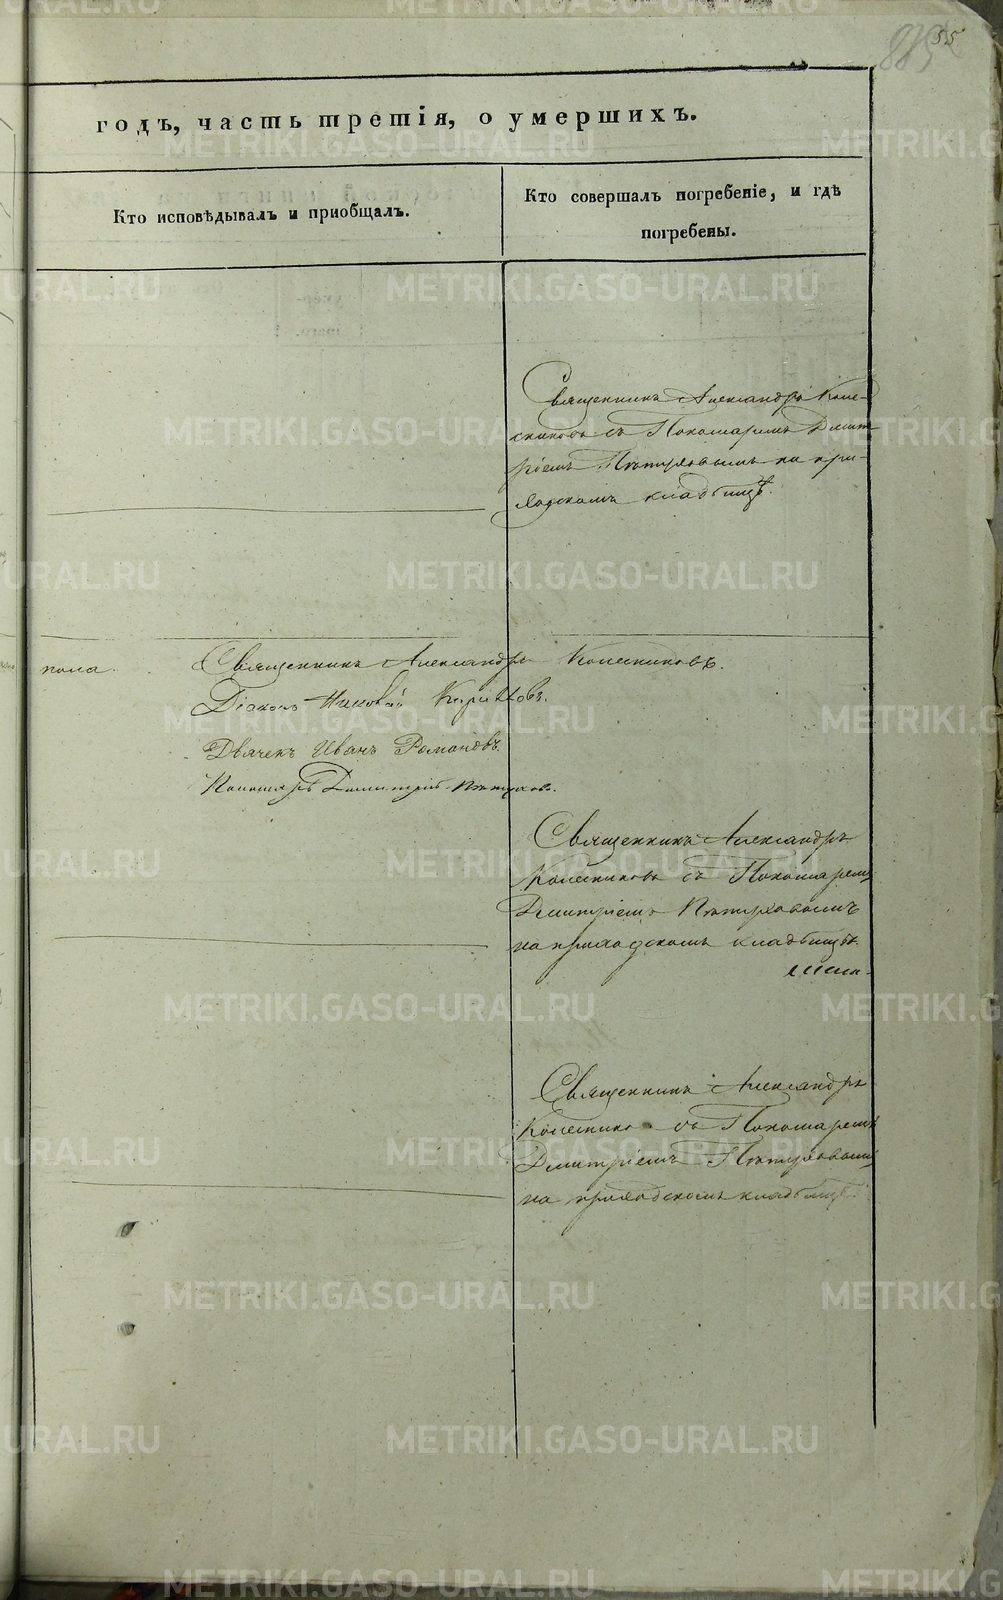 55
годъ, часть третія, о умершихъ.
Кто исповѣдывалъ и приобщалъ.
Кто совершалъ погребеніе, и гдѣ
погребены.
Священникъ Александръ Коле-
сниковъ съ Пономаремъ Дмит
ріемъ Пѣтуховымъ на при-
ходскомъ кладбищѣ.
пола.
Священникъ Александръ Колесниковъ.
Діаконъ Николай
Дьячекъ Иванъ Романовъ.
Пономарь Димитрій Пѣтуховъ.
Священникъ Александръ
Колесниковъ съ Пономаремъ
Дмитріемъ Пѣтуховымъ
на приходскомъ кладбищѣ.
Священникъ Александръ
Колесников съ Пономаремъ
Дмитріемъ Пѣтуховымъ
на приходскомъ кладбищѣ.
METRIKI.GASO-URAL.RU